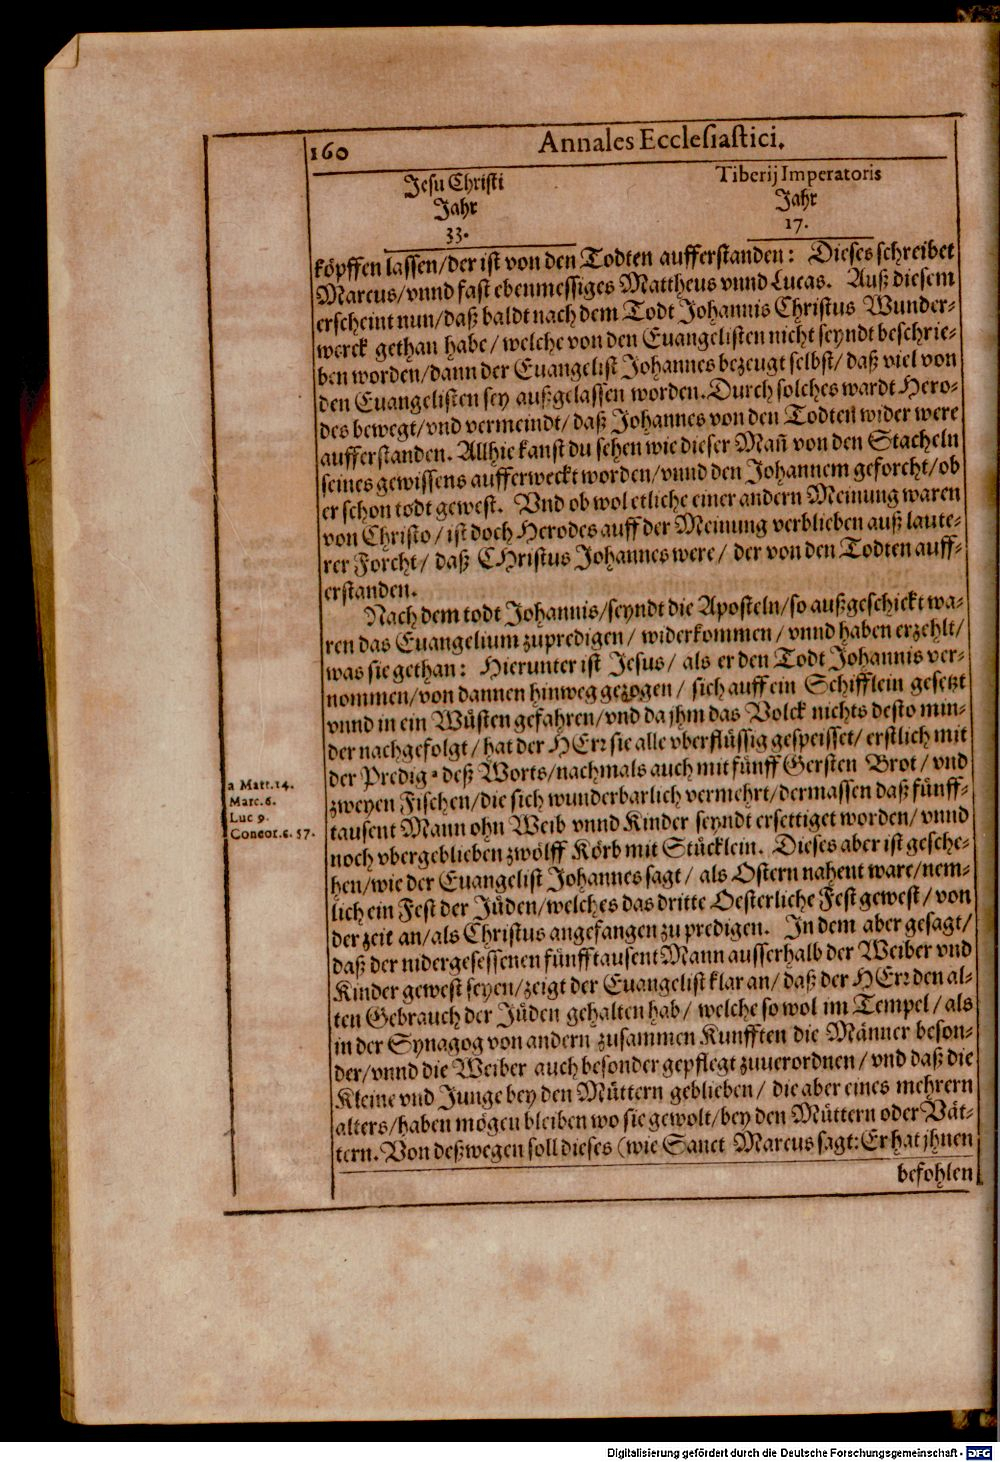 160
Annales Ecclesiastici.
Jesu Christi
Jahr
33.
Tiberij Imperatoris
Jahr
17.
köpffen lassen/der ist von den Todten aufferstanden: Dieses schreibet
Marcus/vnnd fast ebenmessiges Mattheus vnnd Lucas. Auß diesem
erscheint nun/daß baldt nach dem Todt Johannis Christus Wunder-
werck gethan habe/welche von den Euangelisten nicht seyndt beschrie-
ben worden/dann der Euangelist Johannes bezeugt selbst/daß viel von
den Euangelisten sey außgelassen worden. Durch solches wardt Hero-
des bewegt/vnd vermeindt/daß Johannes von den Todten wider were
aufferstanden. Allhie kanst du sehen wie dieser Mañ von den Stacheln
seines gewissens aufferweckt worden/vnnd den Johannem geforcht/ob
er schon todt gewest. Vnd ob wol etliche einer andern Meinung waren
von Christo/ist doch Herodes auff der Meinung verblieben auß laute-
rer Forcht/daß CHristus Johannes were/der von den Todten auff-
erstanden.
Nach dem todt Johannis/seyndt die Aposteln/so außgeschickt wa-
ren das Euangelium zupredigen/widerkommen/vnnd haben erzehlt/
was sie gethan: Hierunter ist Jesus/als er den Todt Johannis ver-
nommen/von dannen hinweg gezogen/sich auff ein Schifflein gesetzt
vnnd in ein Wüsten gefahren/vnd da jhm das Volck nichts desto min-
der nachgefolgt/hat der HErr sie alle vberflüssig gespeisset/erstlich mit
der Predig a deß Worts/nachmals auch mit fünff Gersten Brot/vnd
zweyen Fischen/die sich wunderbarlich vermehrt/dermassen daß fünff-
tausent Mann ohn Weib vnnd Kinder seyndt ersettiget worden/vnnd
noch vbergeblieben zwölff Körb mit Stücklein. Dieses aber ist gesche-
hen/wie der Euangelist Johannes sagt/als Ostern nahent ware/nem-
lich ein Fest der Jüden/welches das dritte Oesterliche Fest gewest/von
der zeit an/als Christus angefangen zu predigen. In dem aber gesagt/
daß der nidergesessenen fünfftausent Mann ausserhalb der Weiber vnd
Kinder gewest seyen/zeigt der Euangelist klar an/daß der HErr den al-
ten Gebrauch der Jüden gehalten hab/welche so wol im Tempel/als
in der Synagog von andern zusammen Kunfften die Männer beson-
der/vnnd die Weiber auch besonder gepflegt zuuerordnen/vnd daß die
Kleine vnd Junge bey den Müttern geblieben/die aber eines mehrern
alters/haben mögen bleiben wo sie gewolt/bey den Müttern oder Vät-
tern. Von deßwegen soll dieses (wie Sanct Marcus sagt: Er hat jhnen
befohlen
a Matt. 14.
Marc. 6.
Luc 9.
Concor. c. 57.
Digitalisierung gefördert durch die Deutsche Forschungsgemeinschaft - DFG